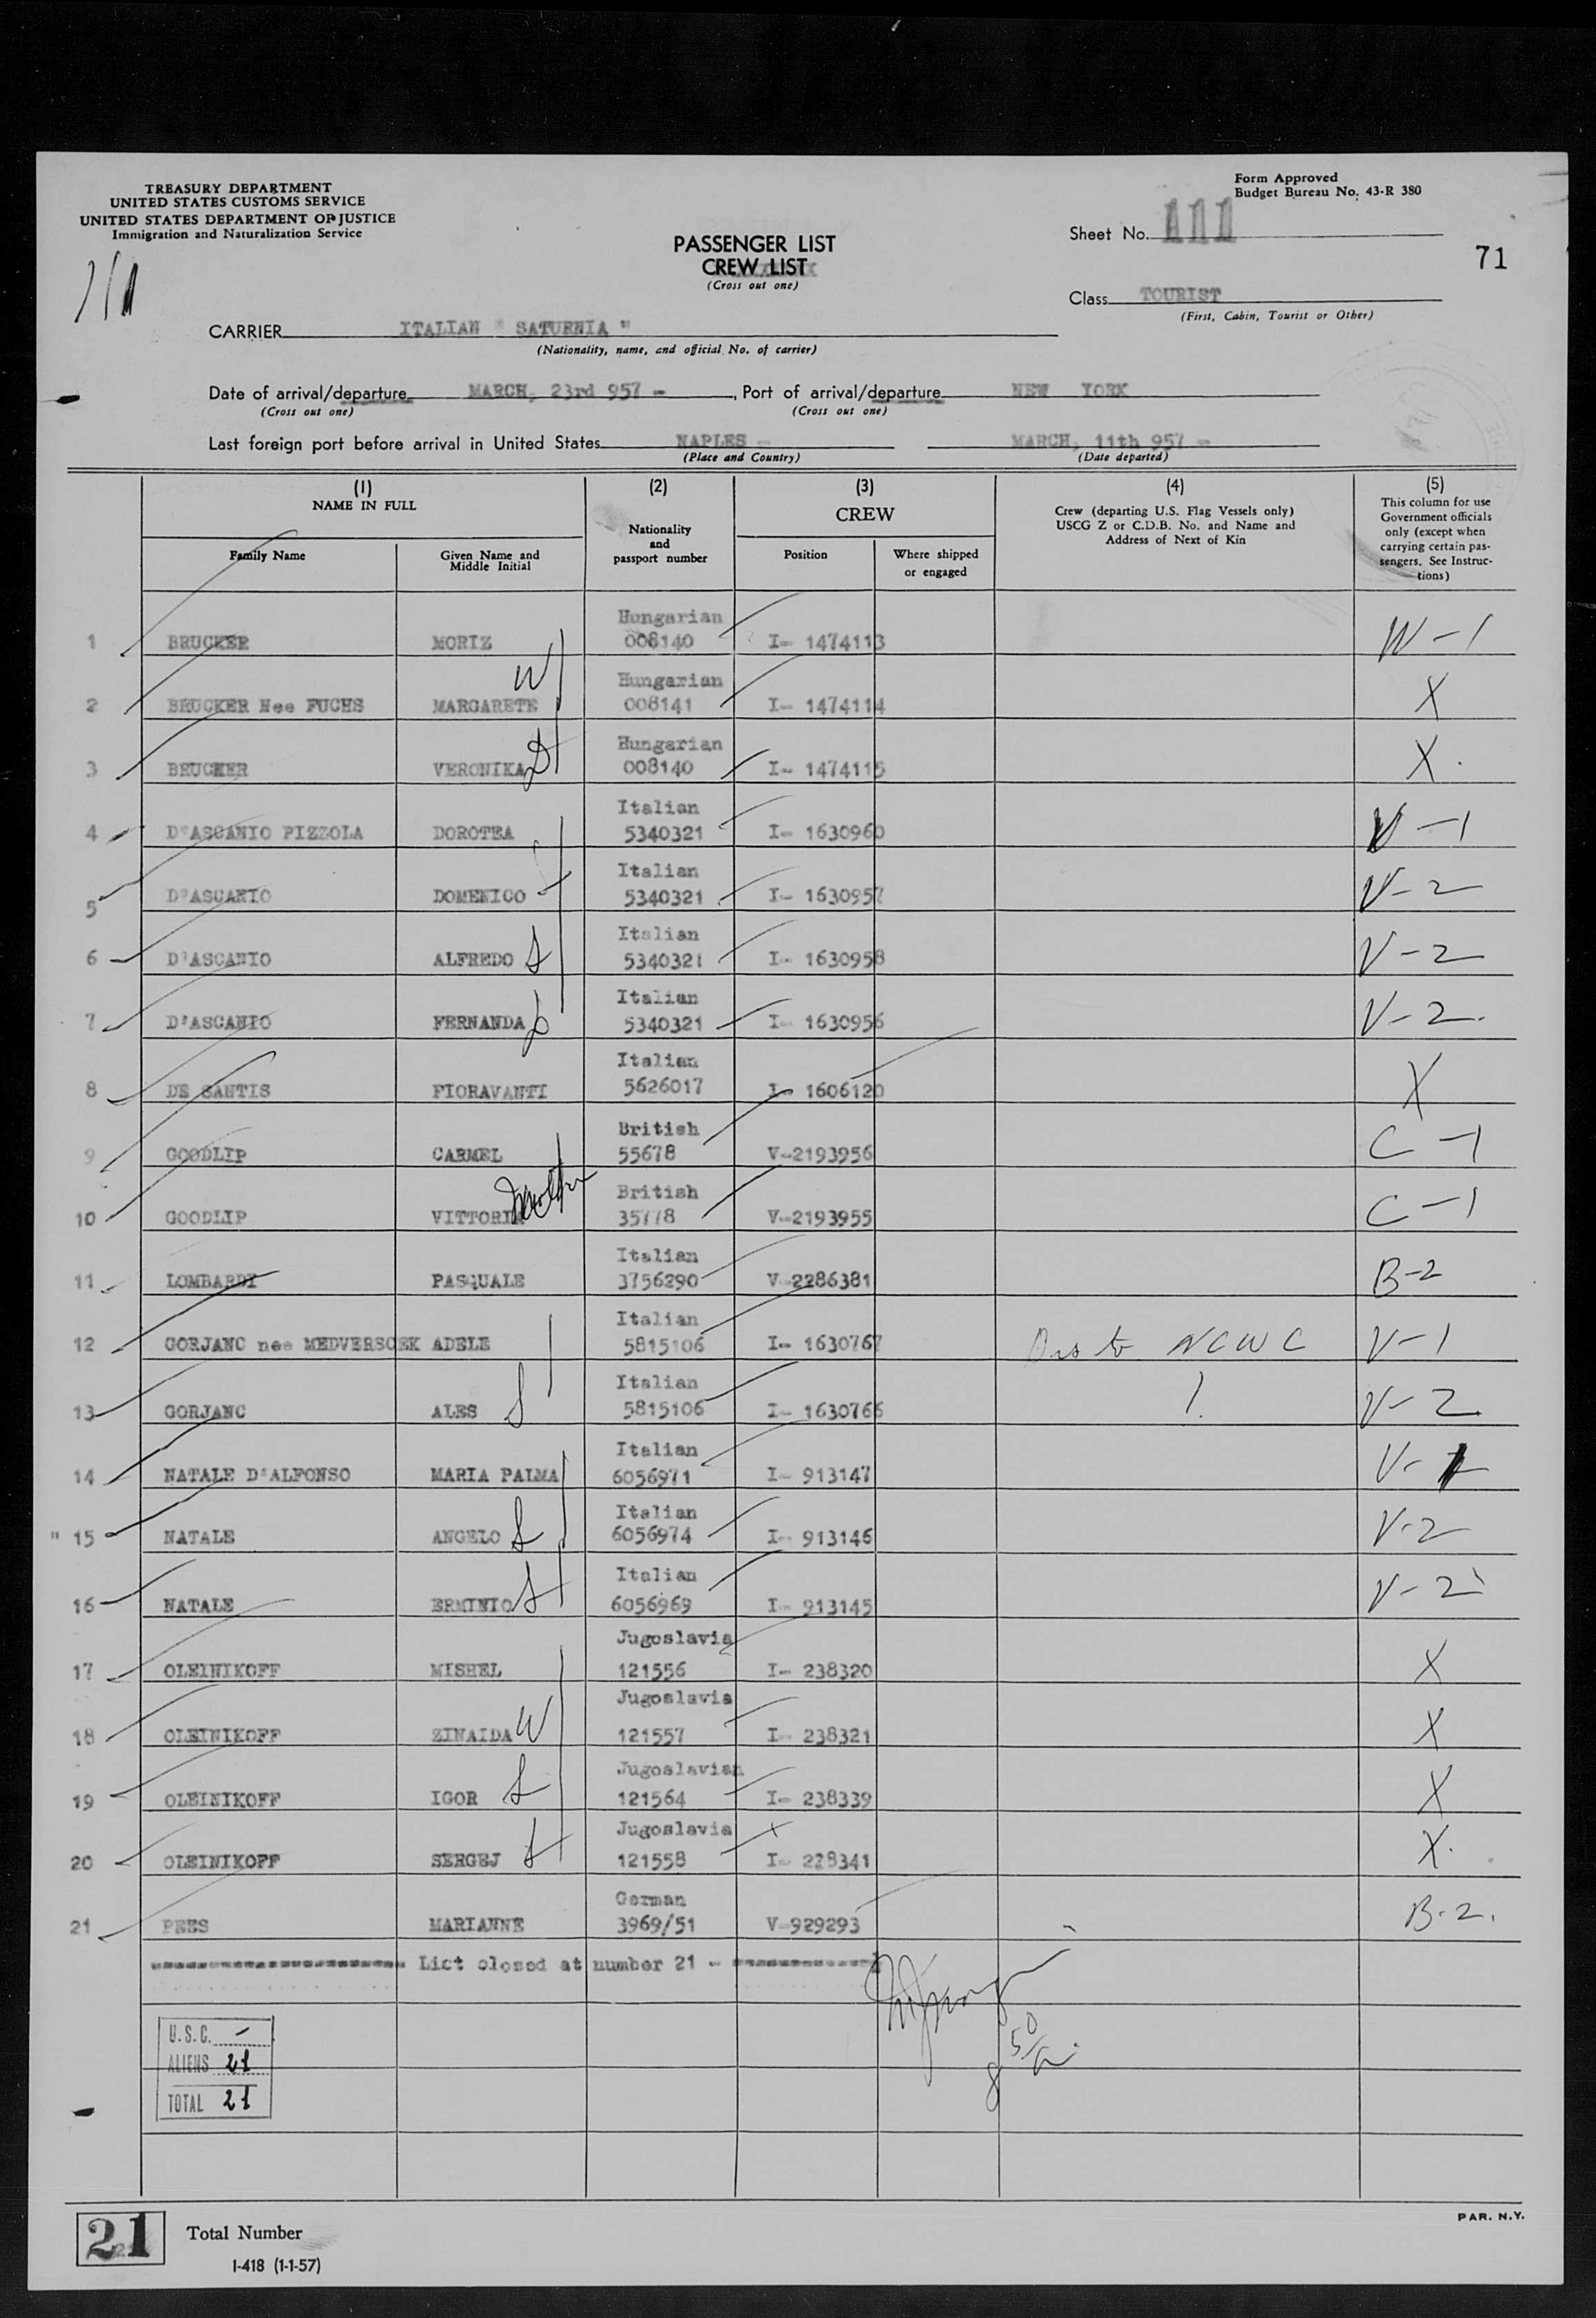 TREASURY DEPARTMENT
UNITED STATES CUSTOMS SERVICE
UNITED STATES DEPARTMENT OF JUSTICE
Immigration and Naturalization Service
Form Approved
Budget Bureau No. 43-R 380
Sheet No. 111
71
PASSENGER LIST
CREW LIST
(Cross out one)
Class TOURIST
(First, Cabin, Tourist or Other)
CARRIER ITALIAN " SATURNIA "
(Nationality, name, and official No. of carrier)
Date of arrival/departure MARCH, 23rd 957 - , Port of arrival/departure NEW YORK
(Cross out one) (Cross out one)
Last foreign port before arrival in United States NAPLES - MARCH, 11th 957 -
(Place and Country) (Date departed)
(1) NAME IN FULL
Family Name
Given Name and Middle Initial
(2)
Nationality and passport number
(3)
CREW
Position
Where shipped or engaged
(4)
Crew (departing U.S. Flag Vessels only)
USCG Z or C.D.B. No. and Name and
Address of Next of Kin
(5)
This column for use
Government officials
only (except when
carrying certain pas-
sengers. See Instruc-
tions)
1 BRUCKER MORIZ Hungarian 008140 I- 1474113 W-1
2 BRUCKER Nee FUCHS MARGARETE W Hungarian 008141 I- 1474114 X
3 BRUCKER VERONIKA D Hungarian 008140 I- 1474115 X
4 D'ASCANIO PIZZOLA DOROTEA Italian 5340321 I- 1630960 V-1
5 D'ASCANIO DOMENICO Italian 5340321 I- 1630957 V-2
6 D'ASCANIO ALFREDO S Italian 5340321 I- 1630958 V-2
7 D'ASCANIO FERNANDA D Italian 5340321 I- 1630956 V-2.
8 DE SANTIS FIORAVANTI Italian 5626017 I- 1606120 X
9 GOODLIP CARMEL British 55678 V-2193956 C-1
10 GOODLIP VITTORIA British 35778 V-2193955 C-1
11 LOMBARDI PASQUALE Italian 3756290 V-2286381 B-2
12 GORJANC nee MEDVERSCEK ADELE Italian 5815106 I- 1630767 NCWC V-1
13 GORJANC ALES S Italian 5815106 I- 1630766 V-2
14 NATALE D'ALFONSO MARIA PALMA Italian 6056971 I- 913147 V-1
15 NATALE ANGELO S Italian 6056974 I- 913146 V-2
16 NATALE ERMINIO S Italian 6056969 I- 913145 V-2
17 OLEINIKOFF MISHEL Jugoslavia 121556 I- 238320 X
18 OLEINIKOFF ZINAIDA W Jugoslavia 121557 I- 238321 X
19 OLEINIKOFF IGOR S Jugoslavian 121564 I- 238339 X
20 OLEINIKOFF SERGEJ S Jugoslavia 121558 I- 228341 X.
21 PEES MARIANNE German 3969/51 V-929293 B-2.
List closed at number 21 -
U.S.C. -
ALIENS 21
TOTAL 21
21 Total Number
I-418 (1-1-57)
PAR. N.Y.